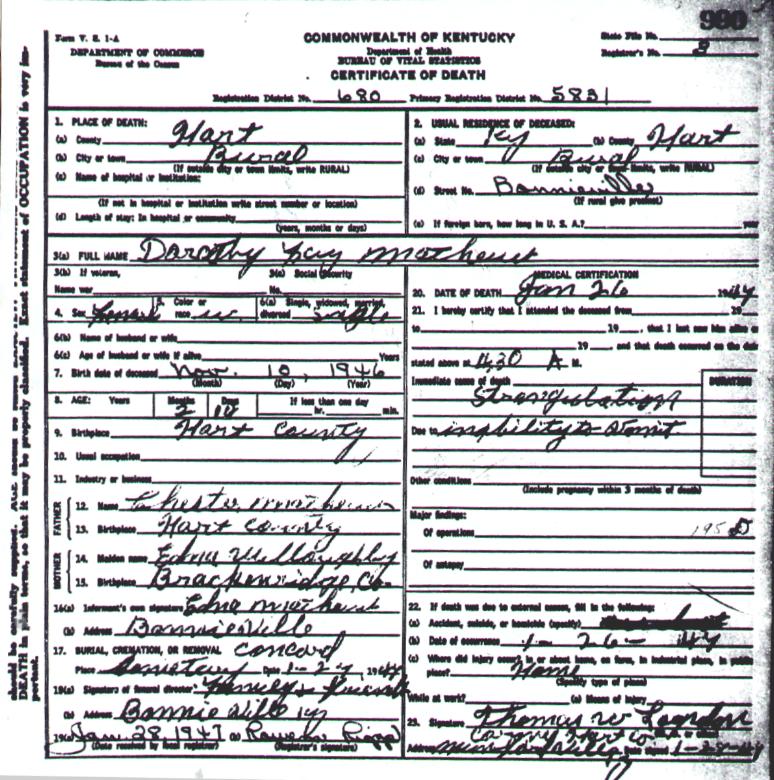 990
Form V. S. 1-A
DEPARTMENT OF COMMERCE
Bureau of the Census
COMMONWEALTH OF KENTUCKY
Department of Health
BUREAU OF VITAL STATISTICS
CERTIFICATE OF DEATH
State File No.
Registrar's No. 3
Registration District No. 680 Primary Registration District No. 5831
1. PLACE OF DEATH:
(a) County Hart
(b) City or town Rural
(If outside city or town limits, write RURAL)
(c) Name of hospital or institution:
(If not in hospital or institution write street number or location)
(d) Length of stay: In hospital or community
(years, months or days)
2. USUAL RESIDENCE OF DECEASED:
(a) State Ky (b) County Hart
(c) City or town Rural
(If outside city or town limits, write RURAL)
(d) Street No. Bonnieville
(If rural give precinct)
(e) If foreign born, how long in U. S. A.? year
3(a) FULL NAME Dorothy Fay Matheus
3(b) If veteran,
Name war
3(c) Social Security
No.
4. Sex Female 5. Color or race w. 6(a) Single, widowed, married, divorced single
6(b) Name of husband or wife
6(c) Age of husband or wife if alive Years
7. Birth date of deceased Nov. 10, 1946
(Month) (Day) (Year)
8. AGE: Years Months 2 Days If less than one day hr. min.
9. Birthplace Hart County
10. Usual occupation
11. Industry or business
FATHER
12. Name Chester
13. Birthplace Hart County
MOTHER
14. Maiden name Edna Willoughby
15. Birthplace Brackenridge Co.
16(a) Informant's own signature Edna Matheus
(b) Address Bonnieville
17. BURIAL, CREMATION, OR REMOVAL Concord
Place Cemetary Date 1-27
18(a) Signature of funeral director Family & Friends
(b) Address Bonnieville Ky
19(a) Jan. 28, 1947 (b)
(Date received by local registrar) (Registrar's signature)
MEDICAL CERTIFICATION
20. DATE OF DEATH Jan 26
21. I hereby certify that I attended the deceased from 19
to 19 , that I last saw him alive o
19 ; and that death occurred on the date
stated above at 4:30 A M.
Immediate cause of death
DURATION
Strangulation
Due to inability to vomit
Other conditions
(Include pregnancy within 3 months of death)
Major findings:
Of operations
195
Of autopsy
22. If death was due to external causes, fill in the following:
(a) Accident, suicide, or homicide (specify)
(b) Date of occurrence 1-26-
(c) Where did injury occur in or about home, on farm, in industrial place, in public
place? Home
(Specify type of place)
While at work? (e) Means of injury
23. Signature Thomas W
Address Date signed
should be carefully supplied. AGE
DEATH in plain terms, so that it may be properly classified. Exact statement of OCCUPATION is very im-
portant.